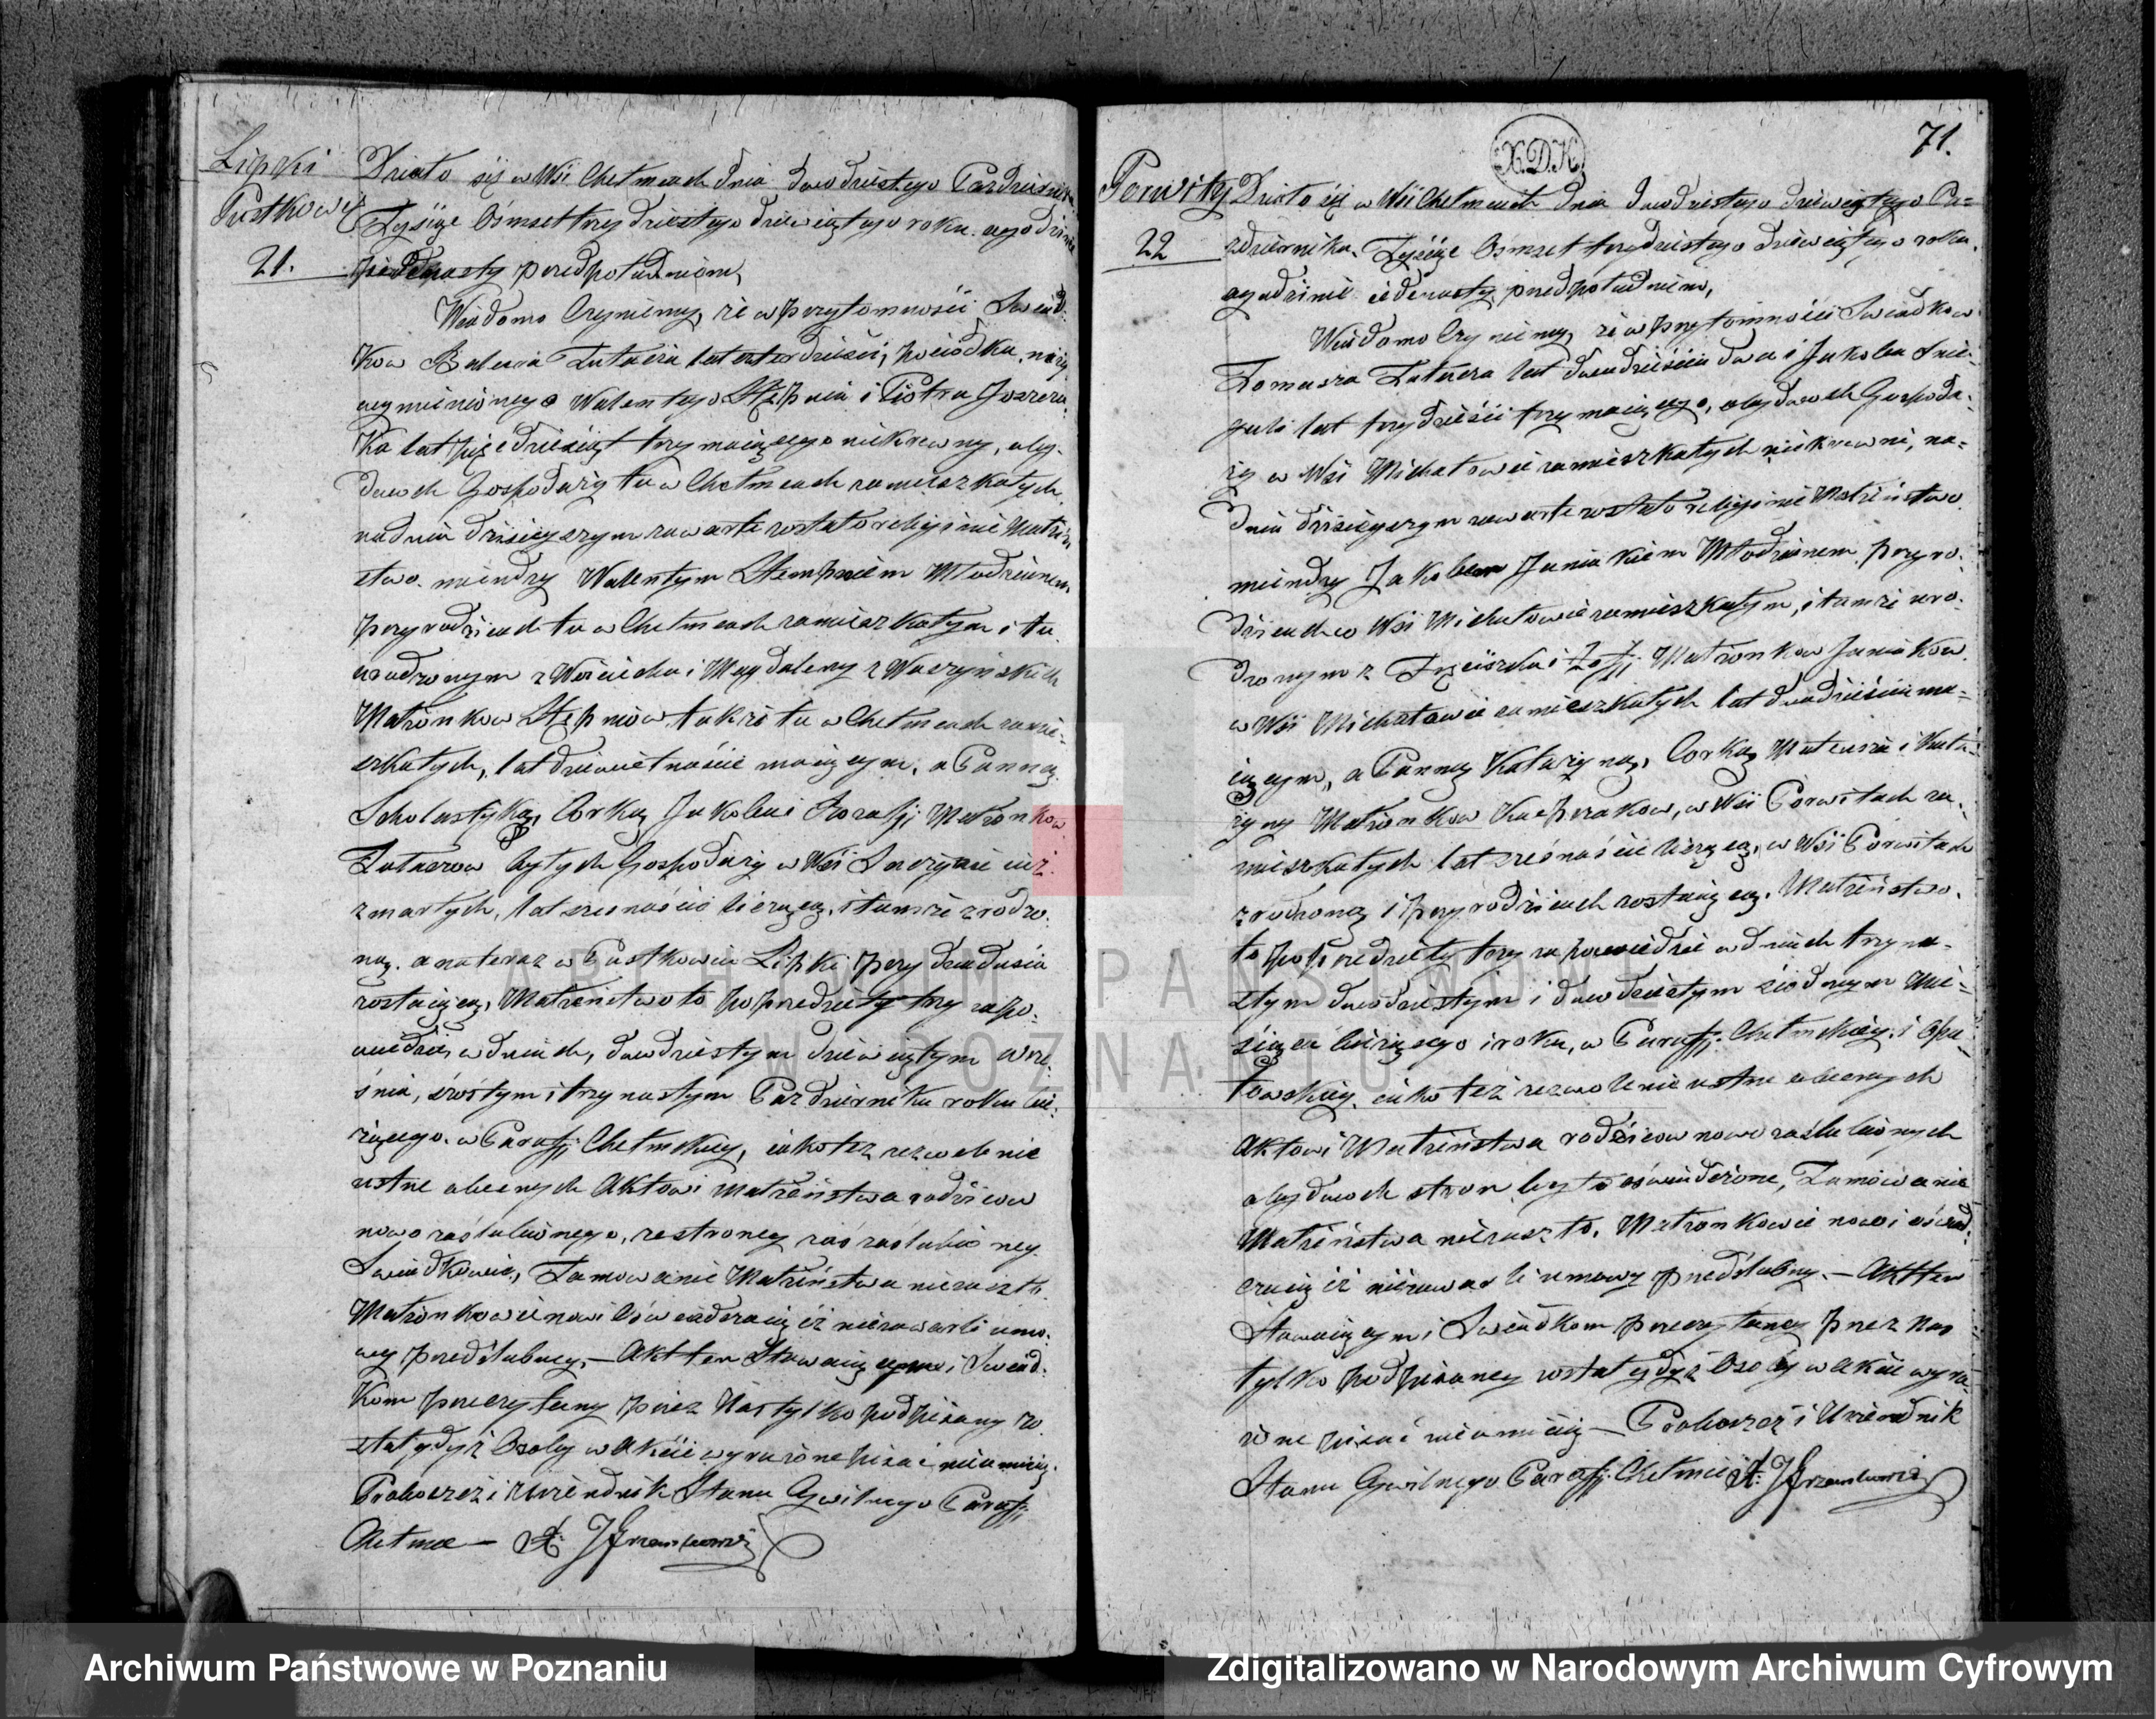 Lipki
Pustkowy
21.
Działo się w Wsi Chełmcach dnia dwodziestego Pazdziernika
Tysiąc Ośmset trzydziestego dziewiątego roku. ogodzinie
przedpołudniem,
Wiadomo Czyniemy, że w przytomności Swiad-
kow Zutacza lat czterdzieści, niży
wymienionego Walentego Stępnia i Piotra Joszcza-
ka lat pięćdziesiąt trzy maiącego niekrewny, oby-
dwoch Gospodarzy tu w Chełmcach zamieszkałych
na dniu dzisieyszym zawarte zostało religijnie Małżeń
stwo. miendzy Walentym Stempniem Młodzianem
przy rodzicach tu w Chełmcach zamieszkałym i tu
urodzonym z Woiciecha i Magdaleny z Waszyńskich
Małżonkow Stępniow także tu w Chełmcach zamie-
szkałych, lat dziewietnaście maiącym, a Panną
Scholastyką, Corką Jakoba i Rozalji Małżonkow
Zutaczow byłych Gospodarzy w Wsi iuż
zmarłych, lat szesnaście liczącą, i tamże zrodzo-
ną. a na teraz w Pustkowiu Lipki przy dziadusiu
zostaiącą, Małżeństwo to poprzedziły trzy zapo-
wiedzie, w dniach, dwodziestym dziewiątym Wrze
śnia, szostym i trzynastym Pazdziernika roku bie-
żącego. w Parafji Chełmskiey, iako też zezwolenie
ustne obecnych Aktowi małżeństwa rodzicow
nowo zaślubionego, ze strony zaś zaślubioney
Swiadkowie, Tamowanie Małżeństwa niezaszło.
Małżonkowie nowi Oświadczaią iż niezawarli umo-
wy przedślubney, — Akt ten Stawaiącym i Swiad-
kom przeczytany przez Nas tylko podpisany zo-
stał, gdyż Osoby w Akcie wyrażone pisać nieumieią.
Proboszcz i Urzendnik Stanu Cywilnego Parafji
Chełmce — X. J
X.D.K.
71.
Porwity
22
Działo się w Wsi Chełmcach dnia dwodziestego dziewiątego Pa-
zdziernika. Tysiąc Ośmset trzydziestego dziewiątego roku.
ogodzinie iedenasty przedpołudniem,
Wiadomo Czyniemy, że w przytomności Swiadkow
Tomasza Zutacza lat dwadzieścia dwa i Jakoba Śnie-
guli lat trzydzieści trzy maiącego, obydwoch Gospoda-
rzy w Wsi Michałowie zamieszkałych niekrewni, na-
dniu dzisieyszym zawarte zostało religijnie Małżeństwo
miendzy Jakobem Janiakiem Młodzianem przy ro-
dzicach w Wsi Michałowie zamieszkałym, i tamże uro-
dzonym z Frąciszka i Zofji Małżonkow Janiakow
w Wsi Michałowie zamieszkałych lat dwadzieścia ma-
iącym, a Panną Katarzyną, Corką Mateusza i Kata-
rzyny Małżonkow Kacprzakow, w Wsi Porwitach za-
mieszkałych lat szesnaście liczącą, w Wsi Porwitach
zrodzoną i przy rodzicach zostaiącą. Małżeństwo
to poprzedziły trzy zapowiedzie w dniach trzyna-
stym dwodziestym i dwodziestym siodmym Mie-
siąca bieżącego i roku, w Parafji Chełmskiey i Opa-
towskiey. iako też zezwolenie ustne obecnych
Aktowi Małżeństwa rodzicow nowo zaślubionych
obydwoch stron było oświadczone, Tamowanie
Małżeństwa niezaszło, Małżonkowie nowi oświad-
czaią iż niezawarli umowy przedślubny. — Akt ten
Stawaiącym i Swiadkom przeczytany przez Nas
tylko podpisany został gdyż Osoby w akcie wyra-
żone pisać nieumieią — Proboszcz i Urzendnik
Stanu Cywilnego Parafji Chełmce X. J
ARCHIWUM PAŃSTWOWE
W POZNANIU
Archiwum Państwowe w Poznaniu
Zdigitalizowano w Narodowym Archiwum Cyfrowym